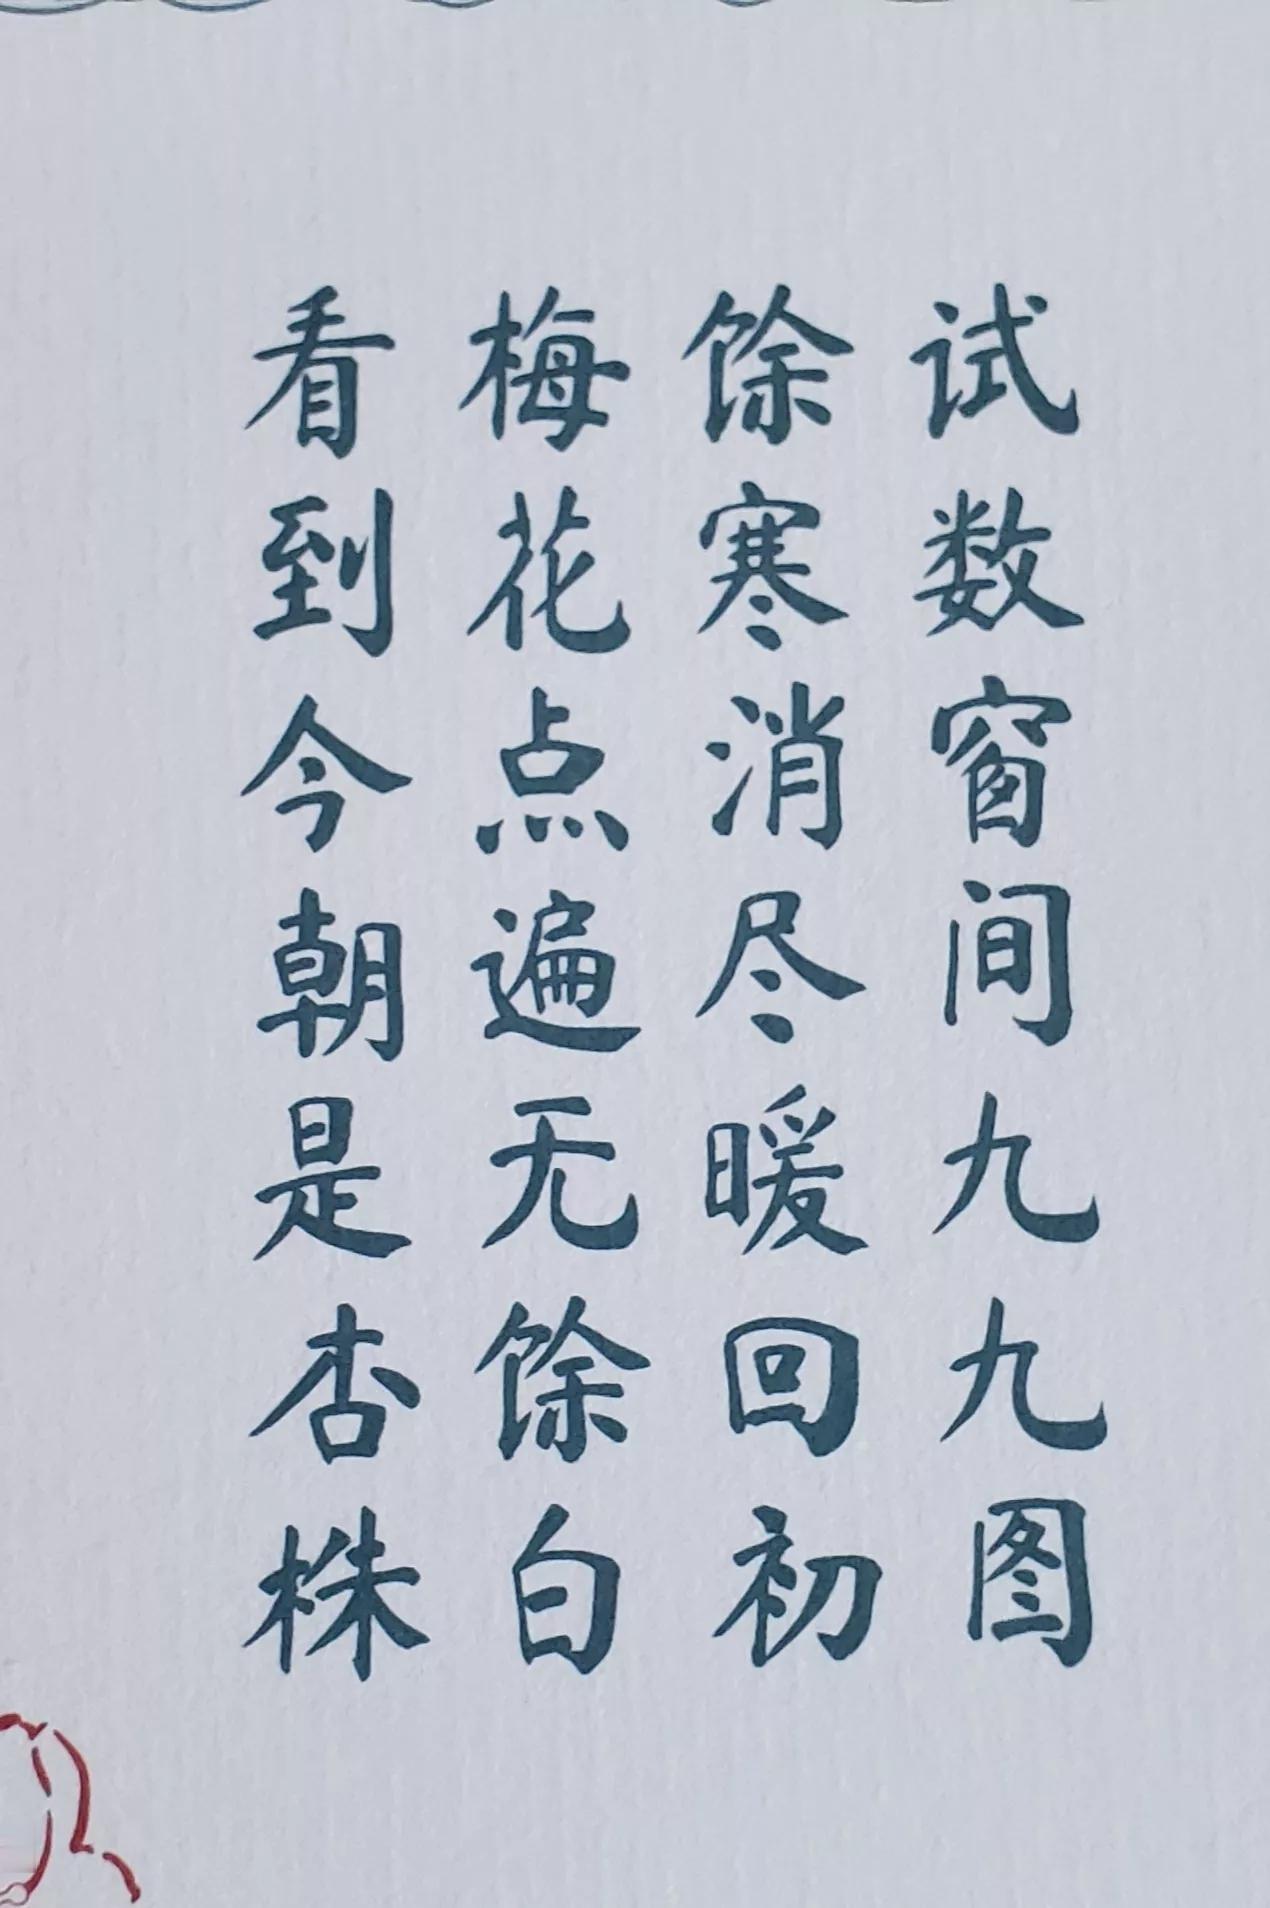 试数窗间九九图
馀寒消尽暖回初
梅花点遍无馀白
看到今朝是杏株